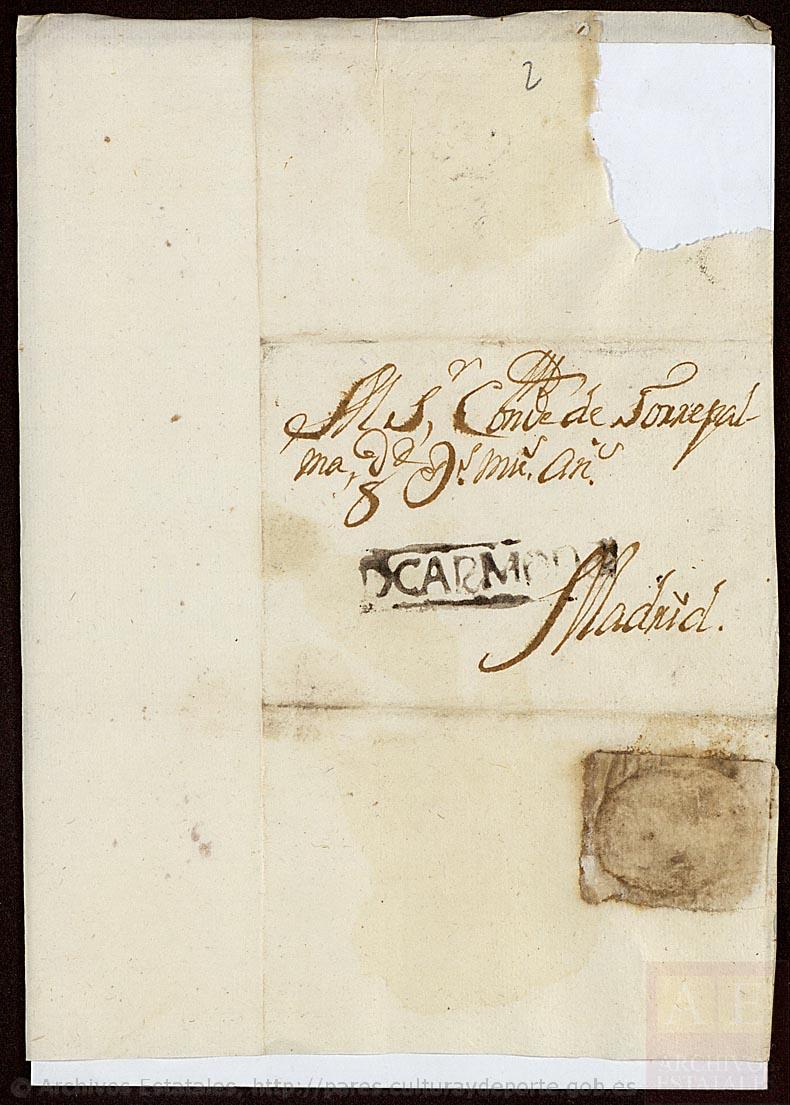 2
Al Sr Conde de Torrepal-
ma, gde Ds. ms. as.
DCARMONA
Madrid.
AE
ARCHIVOS
ESTATALES
© Archivos Estatales, http://pares.culturaydeporte.gob.es